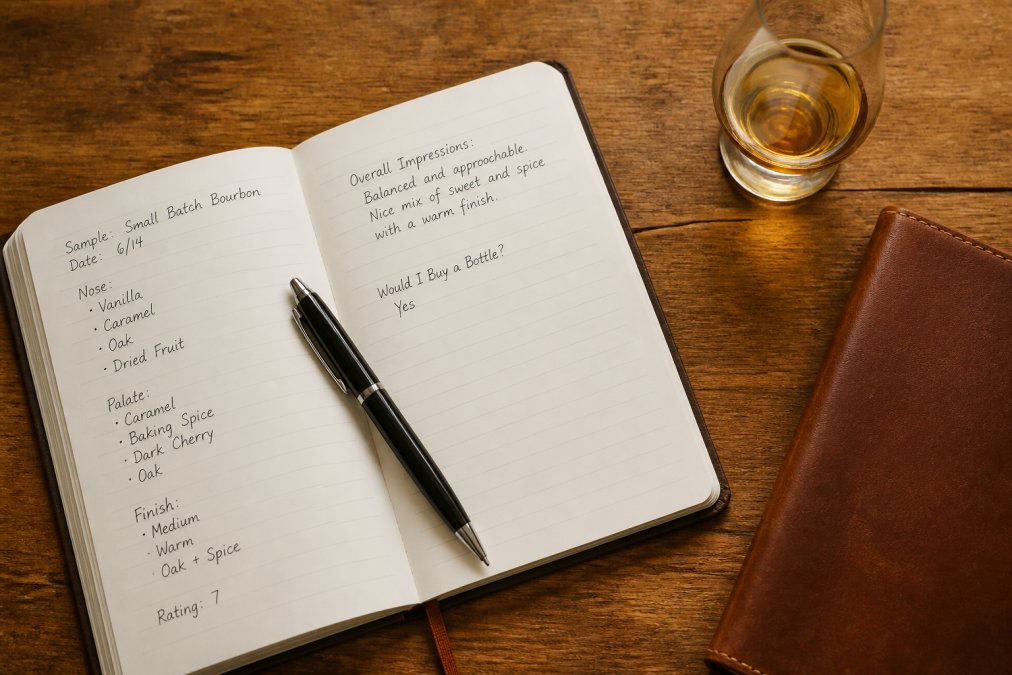 Sample: Small Batch Bourbon
Date: 6/14
Nose:
• Vanilla
• Caramel
• Oak
• Dried Fruit
Palate:
• Caramel
• Baking Spice
• Dark Cherry
• Oak
Finish:
• Medium
• Warm
• Oak + Spice
Rating: 7
Overall Impressions:
Balanced and approachable.
Nice mix of sweet and spice
with a warm finish.
Would I Buy a Bottle?
Yes